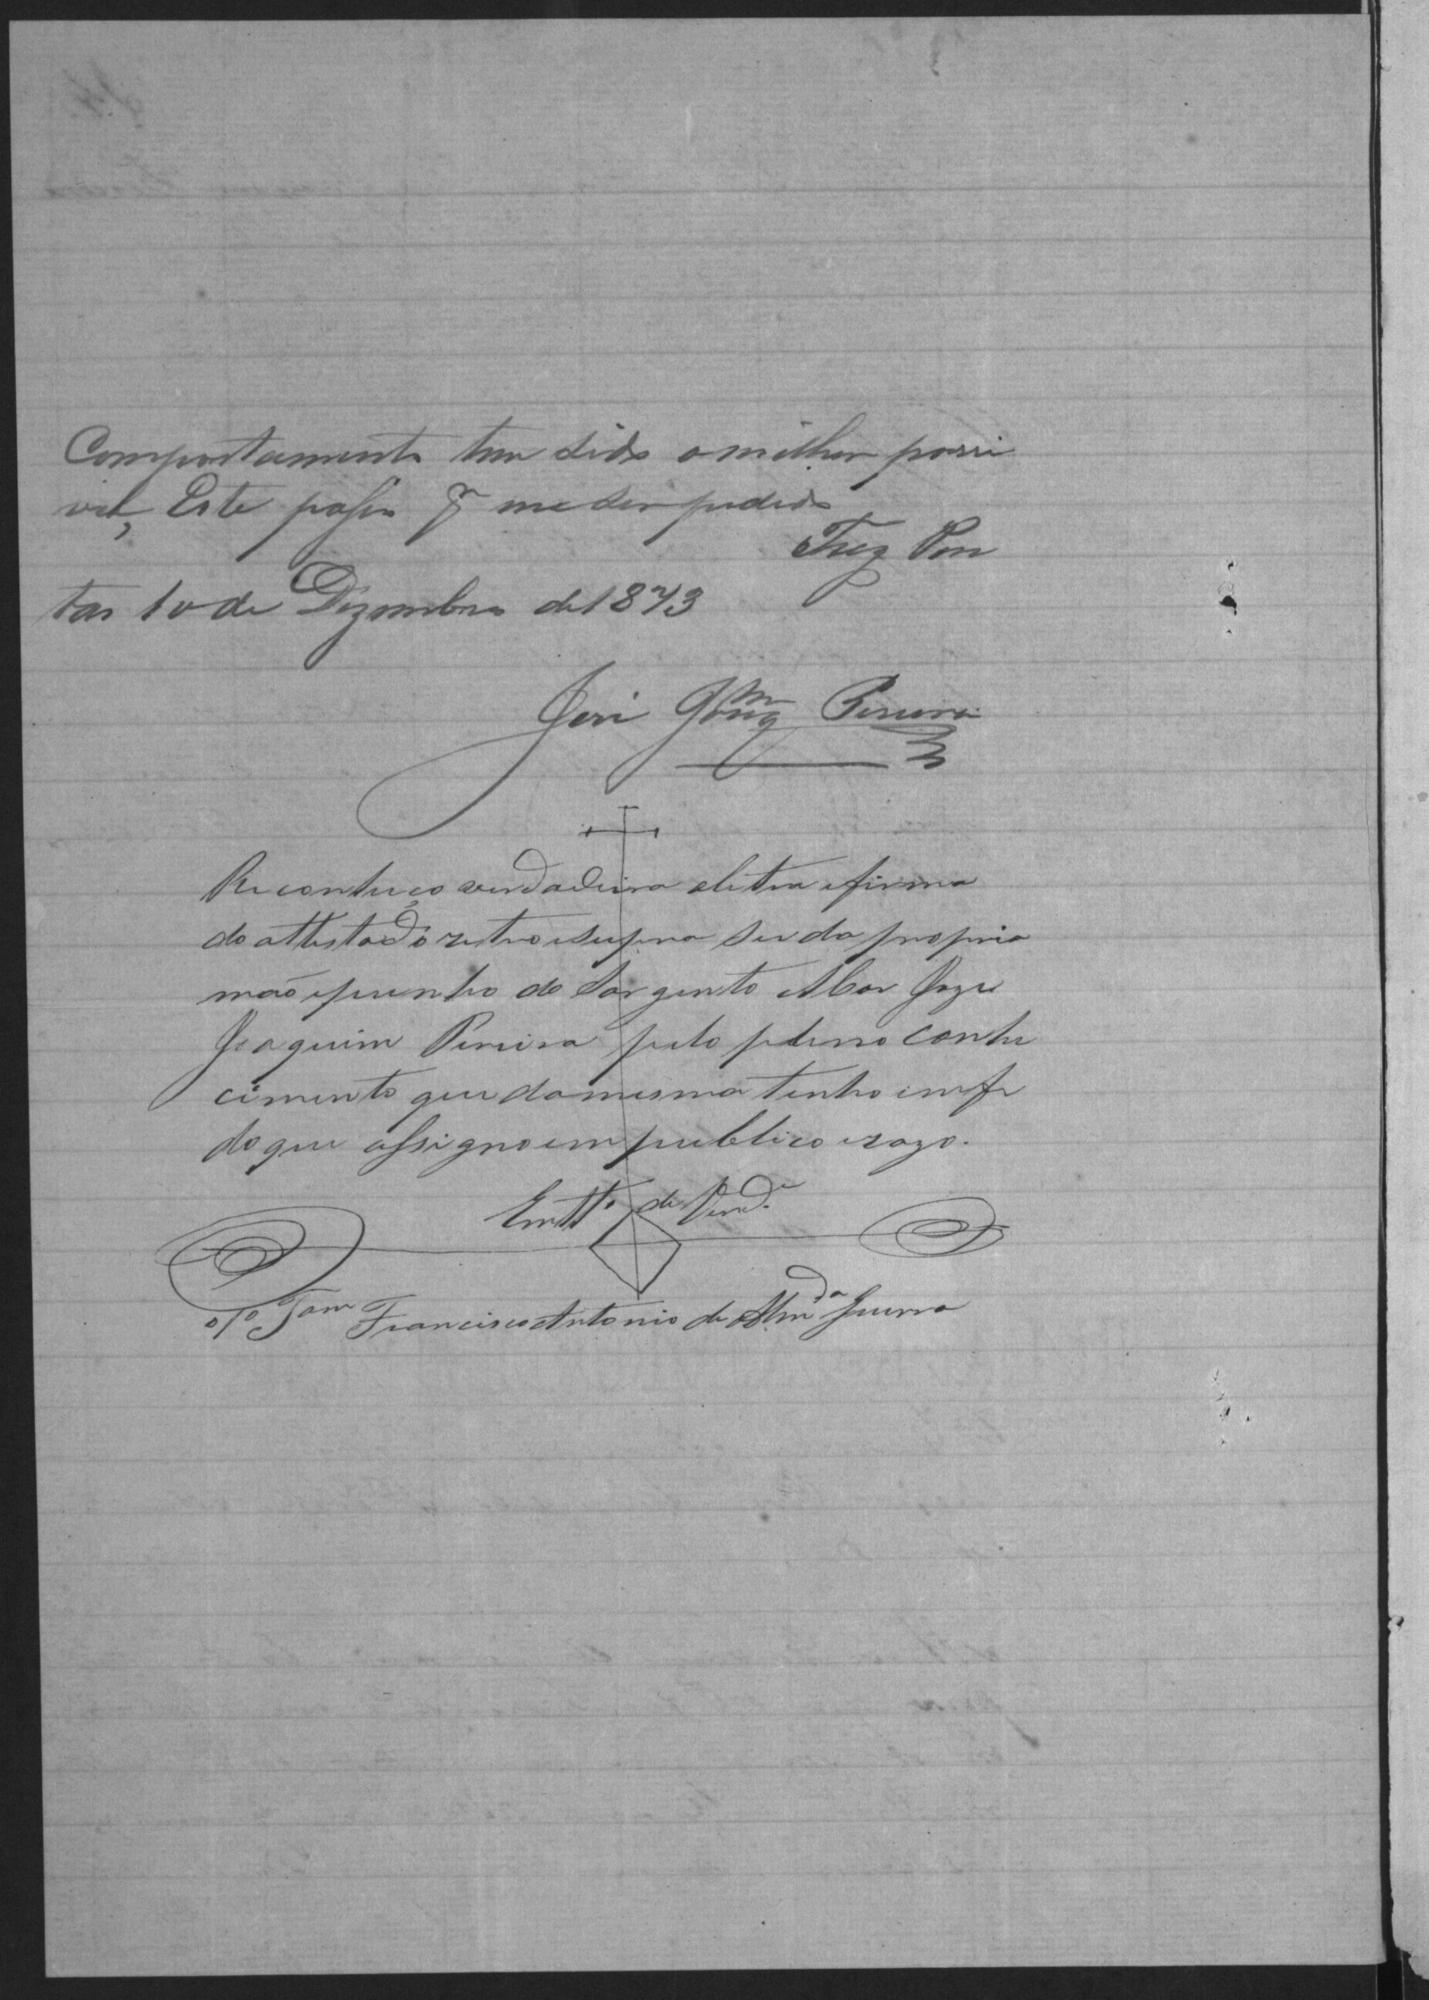 Comportamento tem sido o milhor possi
vel, Este passo pr me ser pedido
Trez Pon
tas 10 de Dezembro de 1873
José Joaqm Pereira
Reconheço verdadeira aletra efirma
do attestado retro esupra ser da propria
mão epunho do Sargento Mor Joze
Joaquim Pereira pelo pleno conhe
cimento que damesma tenho emfe
do que assigno em publico erazo.
Em testo de Verde
O 1o Tam Francisco Antonio de Almda Guerra